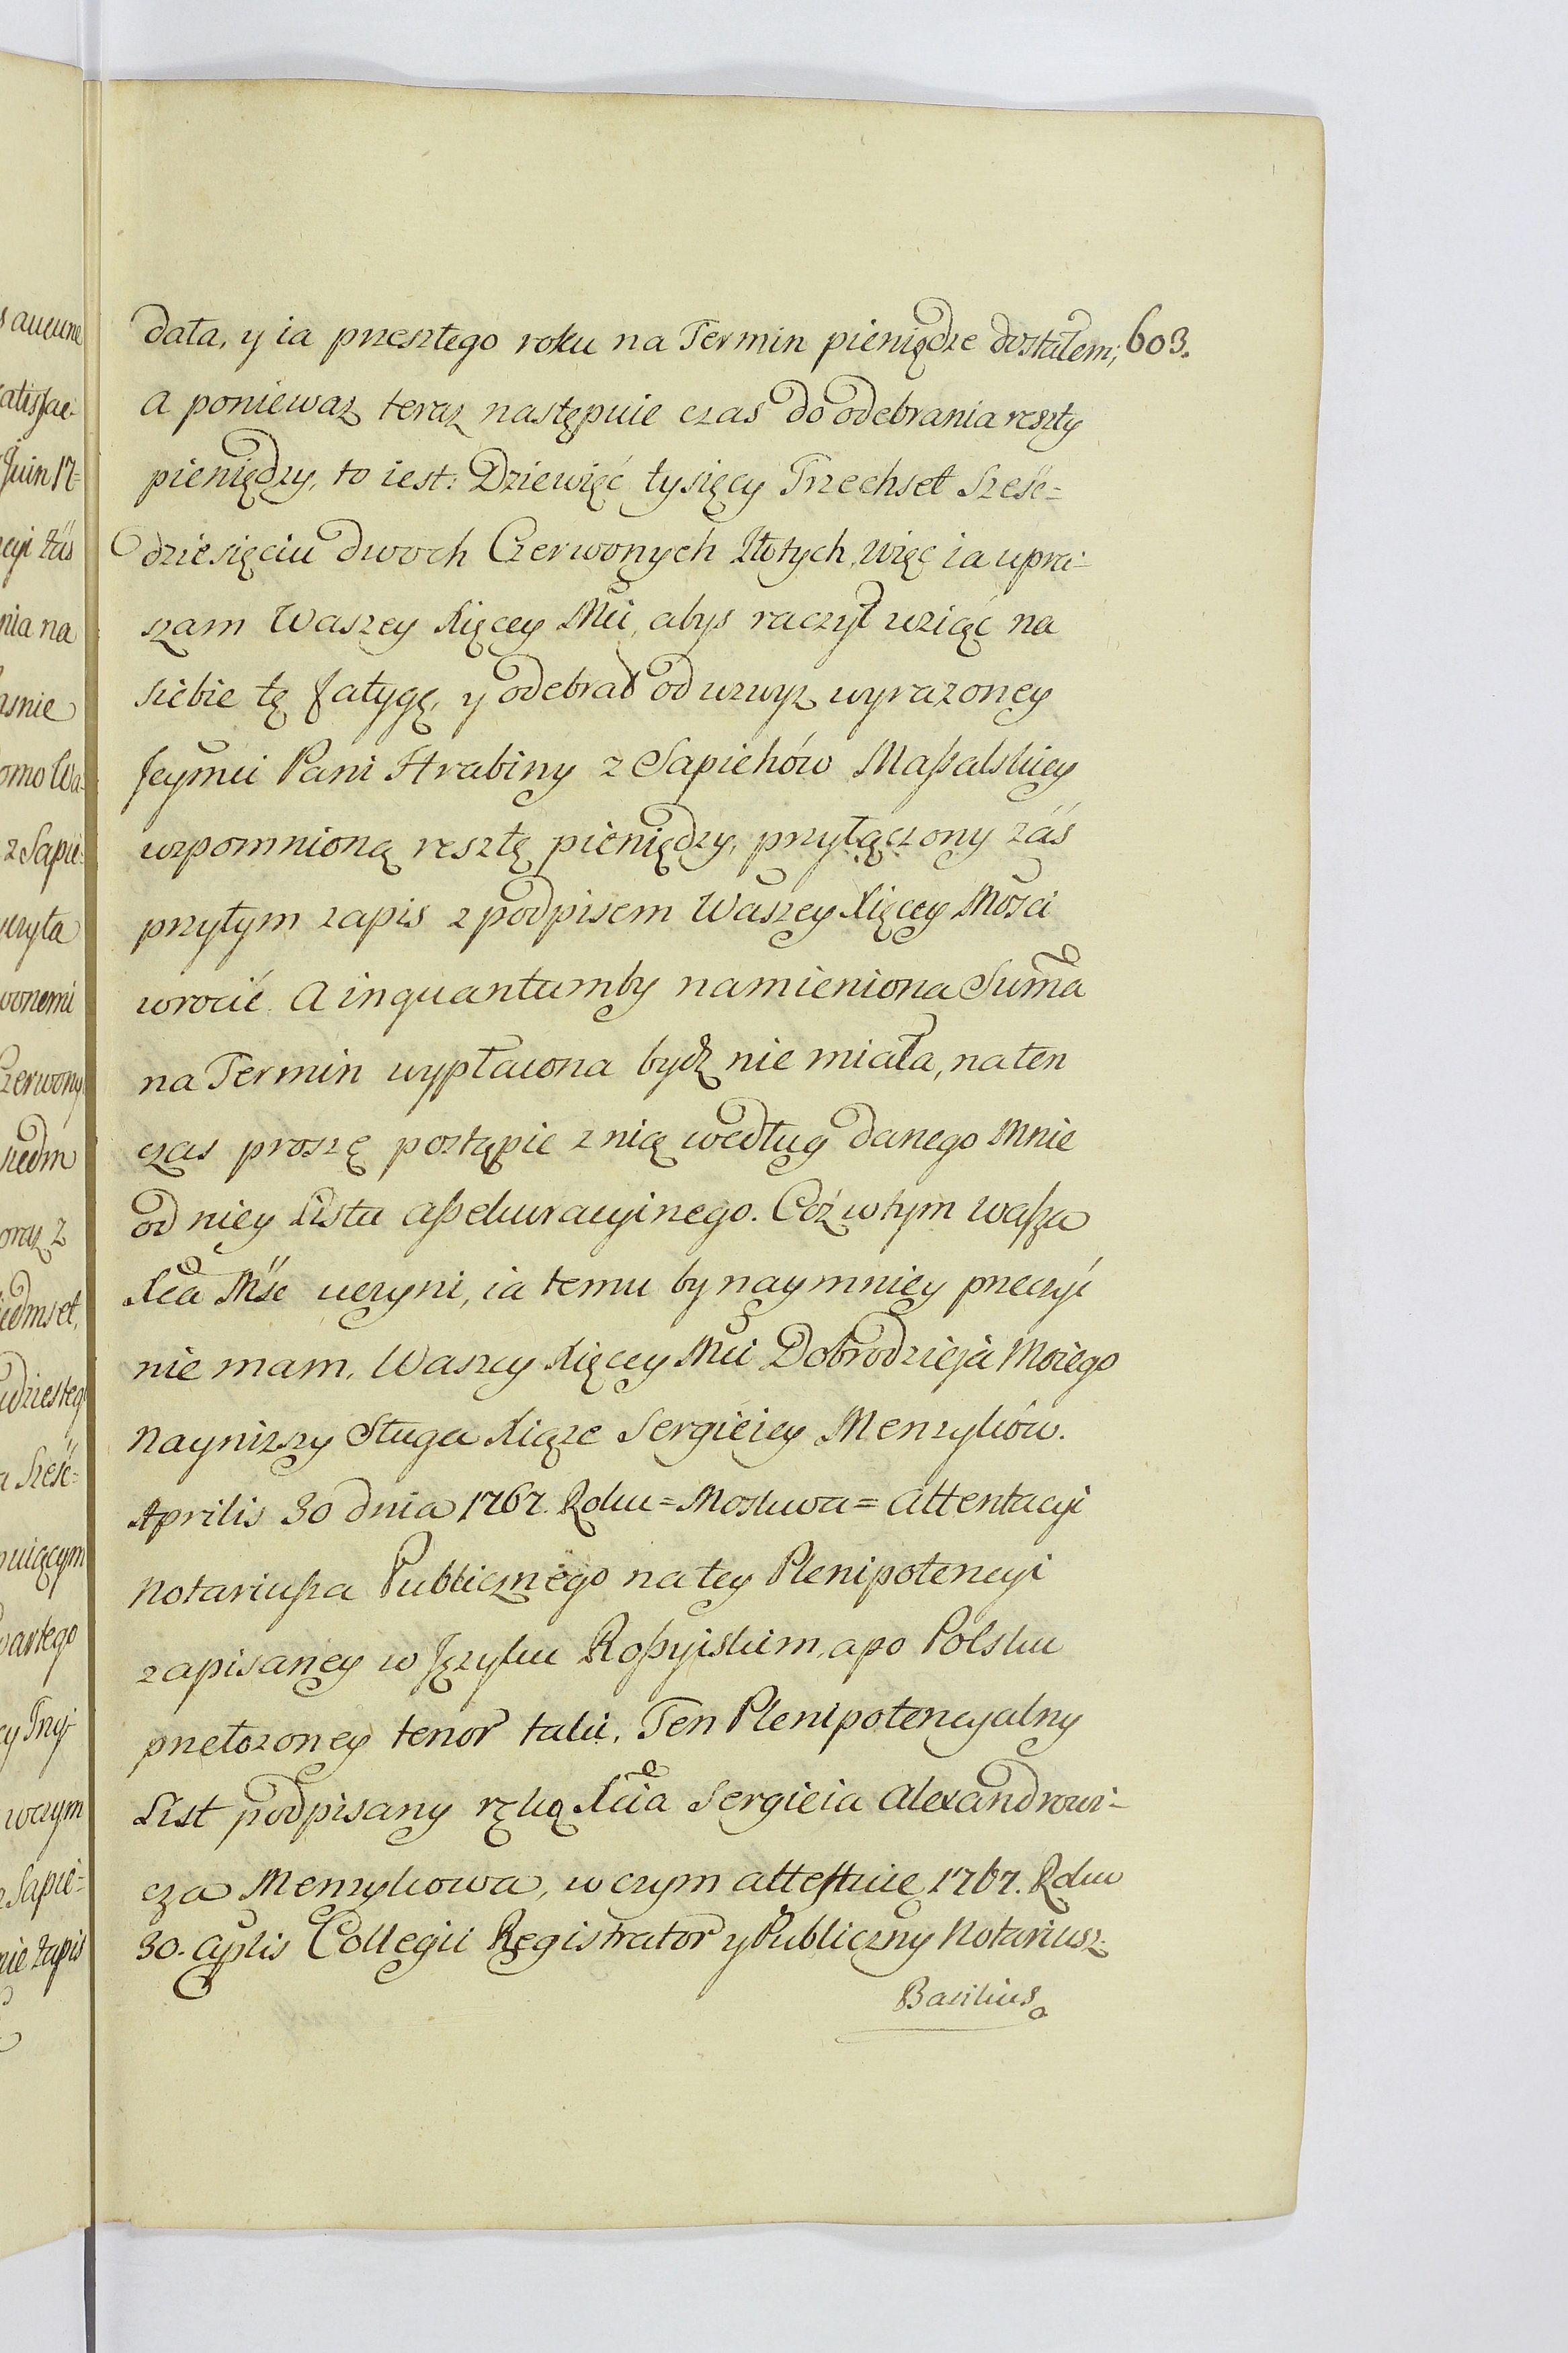 603.
dała, y ia przeszłego roku na Termin pieniądze dostałem;
a poniewaz teraz następuie czas do odebrania reszty
pieniędzy, to iest: Dziewięć tysięcy Trzechset Sześć=
dziesięciu dwoch Czerwonych Złotych, więc ia upra-
szam Waszey Xięcey Mci, abys raczył wziąć na
siebie tę fatygę, y odebrał od wzwyz wyrazoney
Jeymci Pani Hrabiny z Sapiehów Maßalskiey
wzpomnioną resztę pieniędzy, przyłączony záś
przytym zapis z podpisem Waszey Xięcey Mości
wrocić. A inquantumby namieniona Summa
na Termin wypłacona bydz nie miała, na ten
czas proszę postąpic z nią według danego mnie
od niey Listu aßekuracyinego. Coż w tym wasza
Xca Mść uczyni, ia temu by naymniey przeczyć
nie mam. Waszey Xięcey Mci Dobrodzieja Moiego
naynizszy Sługa Xiąze Sergieiey Menzyków.
Aprilis 30 dnia 1767. Roku = Moskwa = Attentacyi
Notariußa Publicznego na tey Plenipotencyi
zapisaney w Języku Roßyiskim, a po Polsku
przełozoney tenor taki. Ten Plenipotencyalny
List podpisany ręką Xcia Sergieia Alexandrowi-
cza Menzykowa, w czym attestuie 1767. Roku
30. Aplis Collegii Registrator y Publiczny Notariusz
Basilius